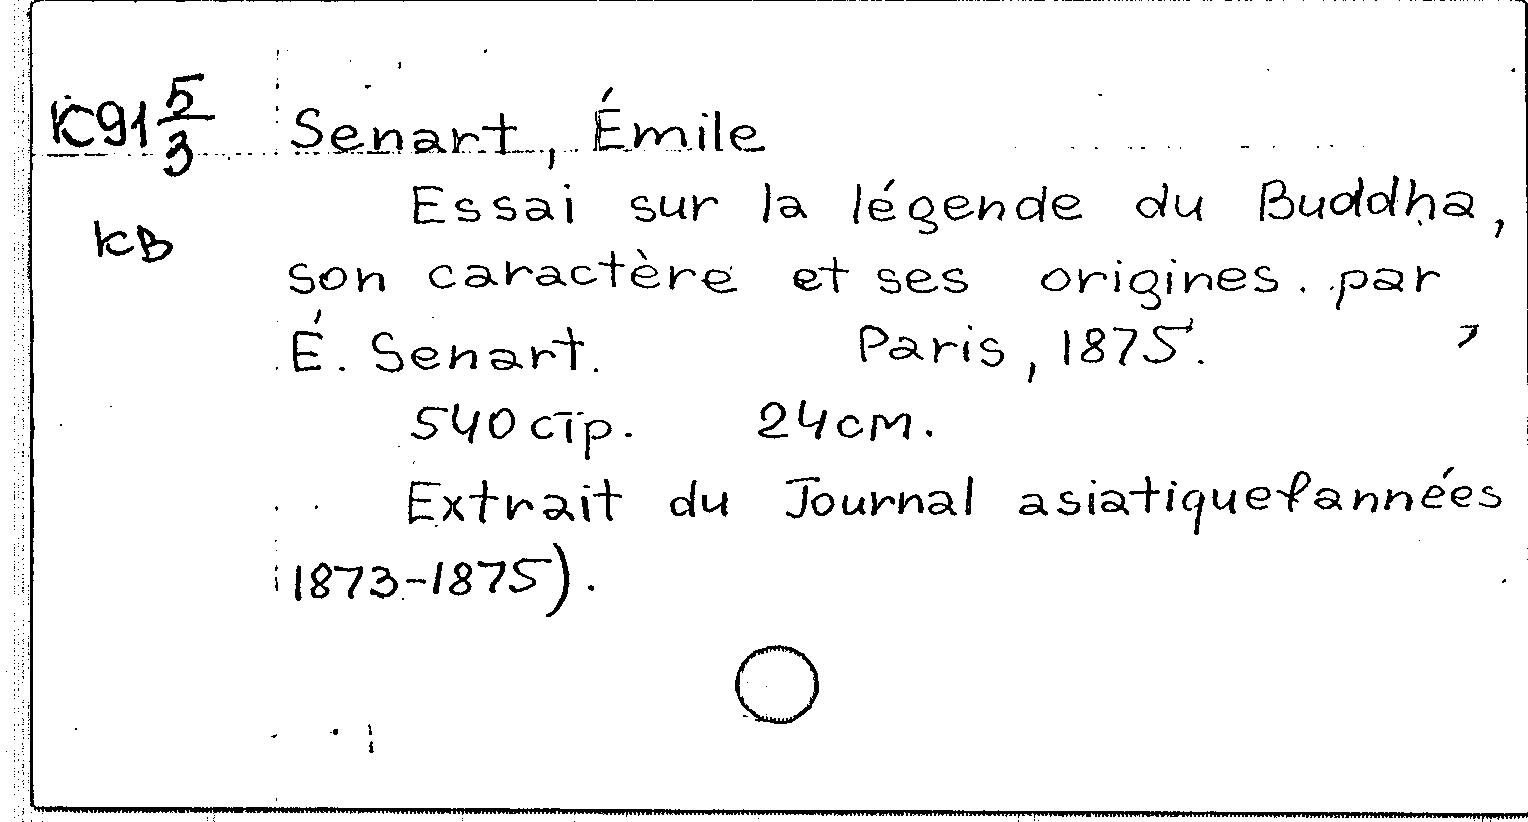 К91 5/3 Senart, Émile
Essai sur la légende du Buddha,
КВ
son caractère et ses origines. par
É. Senart. Paris, 1875.
540 стр. 24 см.
Extrait du Journal asiatique (années
1873-1875).